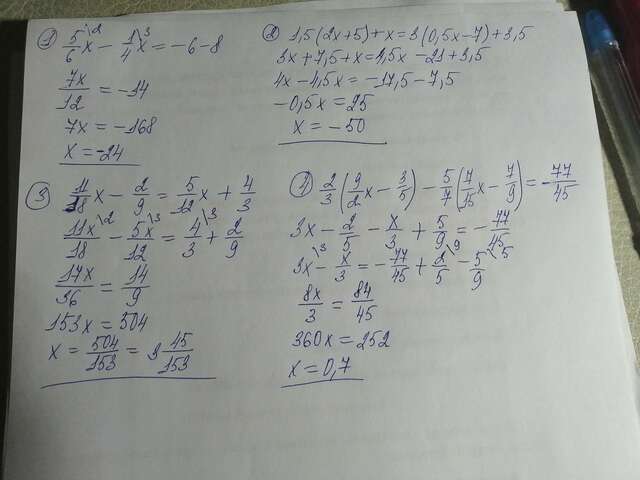 ① 5/6 \2 x − 1/4 \3 x = −6−8
7x/12 = −14
7x = −168
x = −24
② 1,5(2x+5)+x=3(0,5x−7)+3,5
3x+7,5+x=4,5x −21+3,5
4x−4,5x = −17,5−7,5
−0,5x = 25
x = −50
③ 11/18 x − 2/9 = 5/12 x + 4/3
11x/18 \2 − 5x/12 \3 = 4/3 \3 + 2/9
17x/36 = 14/9
153x = 504
x = 504/153 = 3 45/153
④ 2/3 (9/2 x − 3/5) − 5/7 (7/15 x − 7/9) = −77/45
3x − 2/5 − x/3 + 5/9 = −77/45
3x \3 − x/3 = −77/45 + 2/5 \9 − 5/9 \5
8x/3 = 84/45
360x = 252
x = 0,7